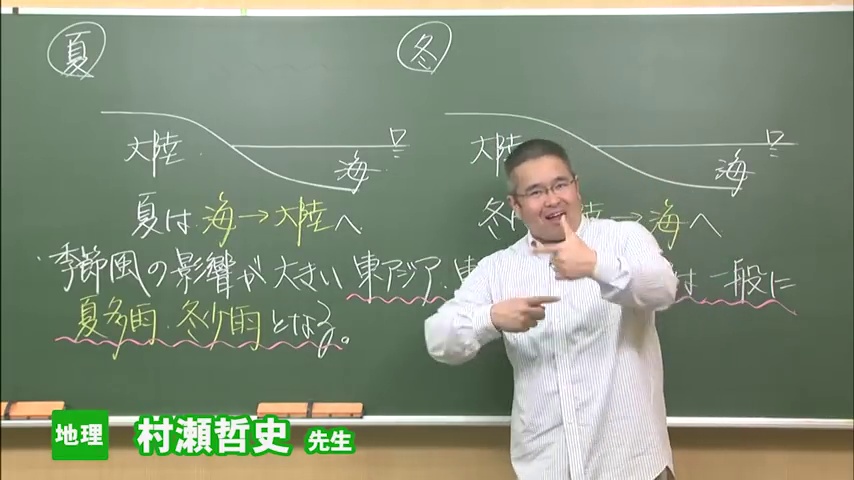 夏
冬
大陸
海
大陸
海
夏は 海→大陸へ
冬 陸→海へ
季節風の影響が大きい 東アジア・東 は一般に
夏多雨・冬少雨となる。
地理 村瀬哲史 先生